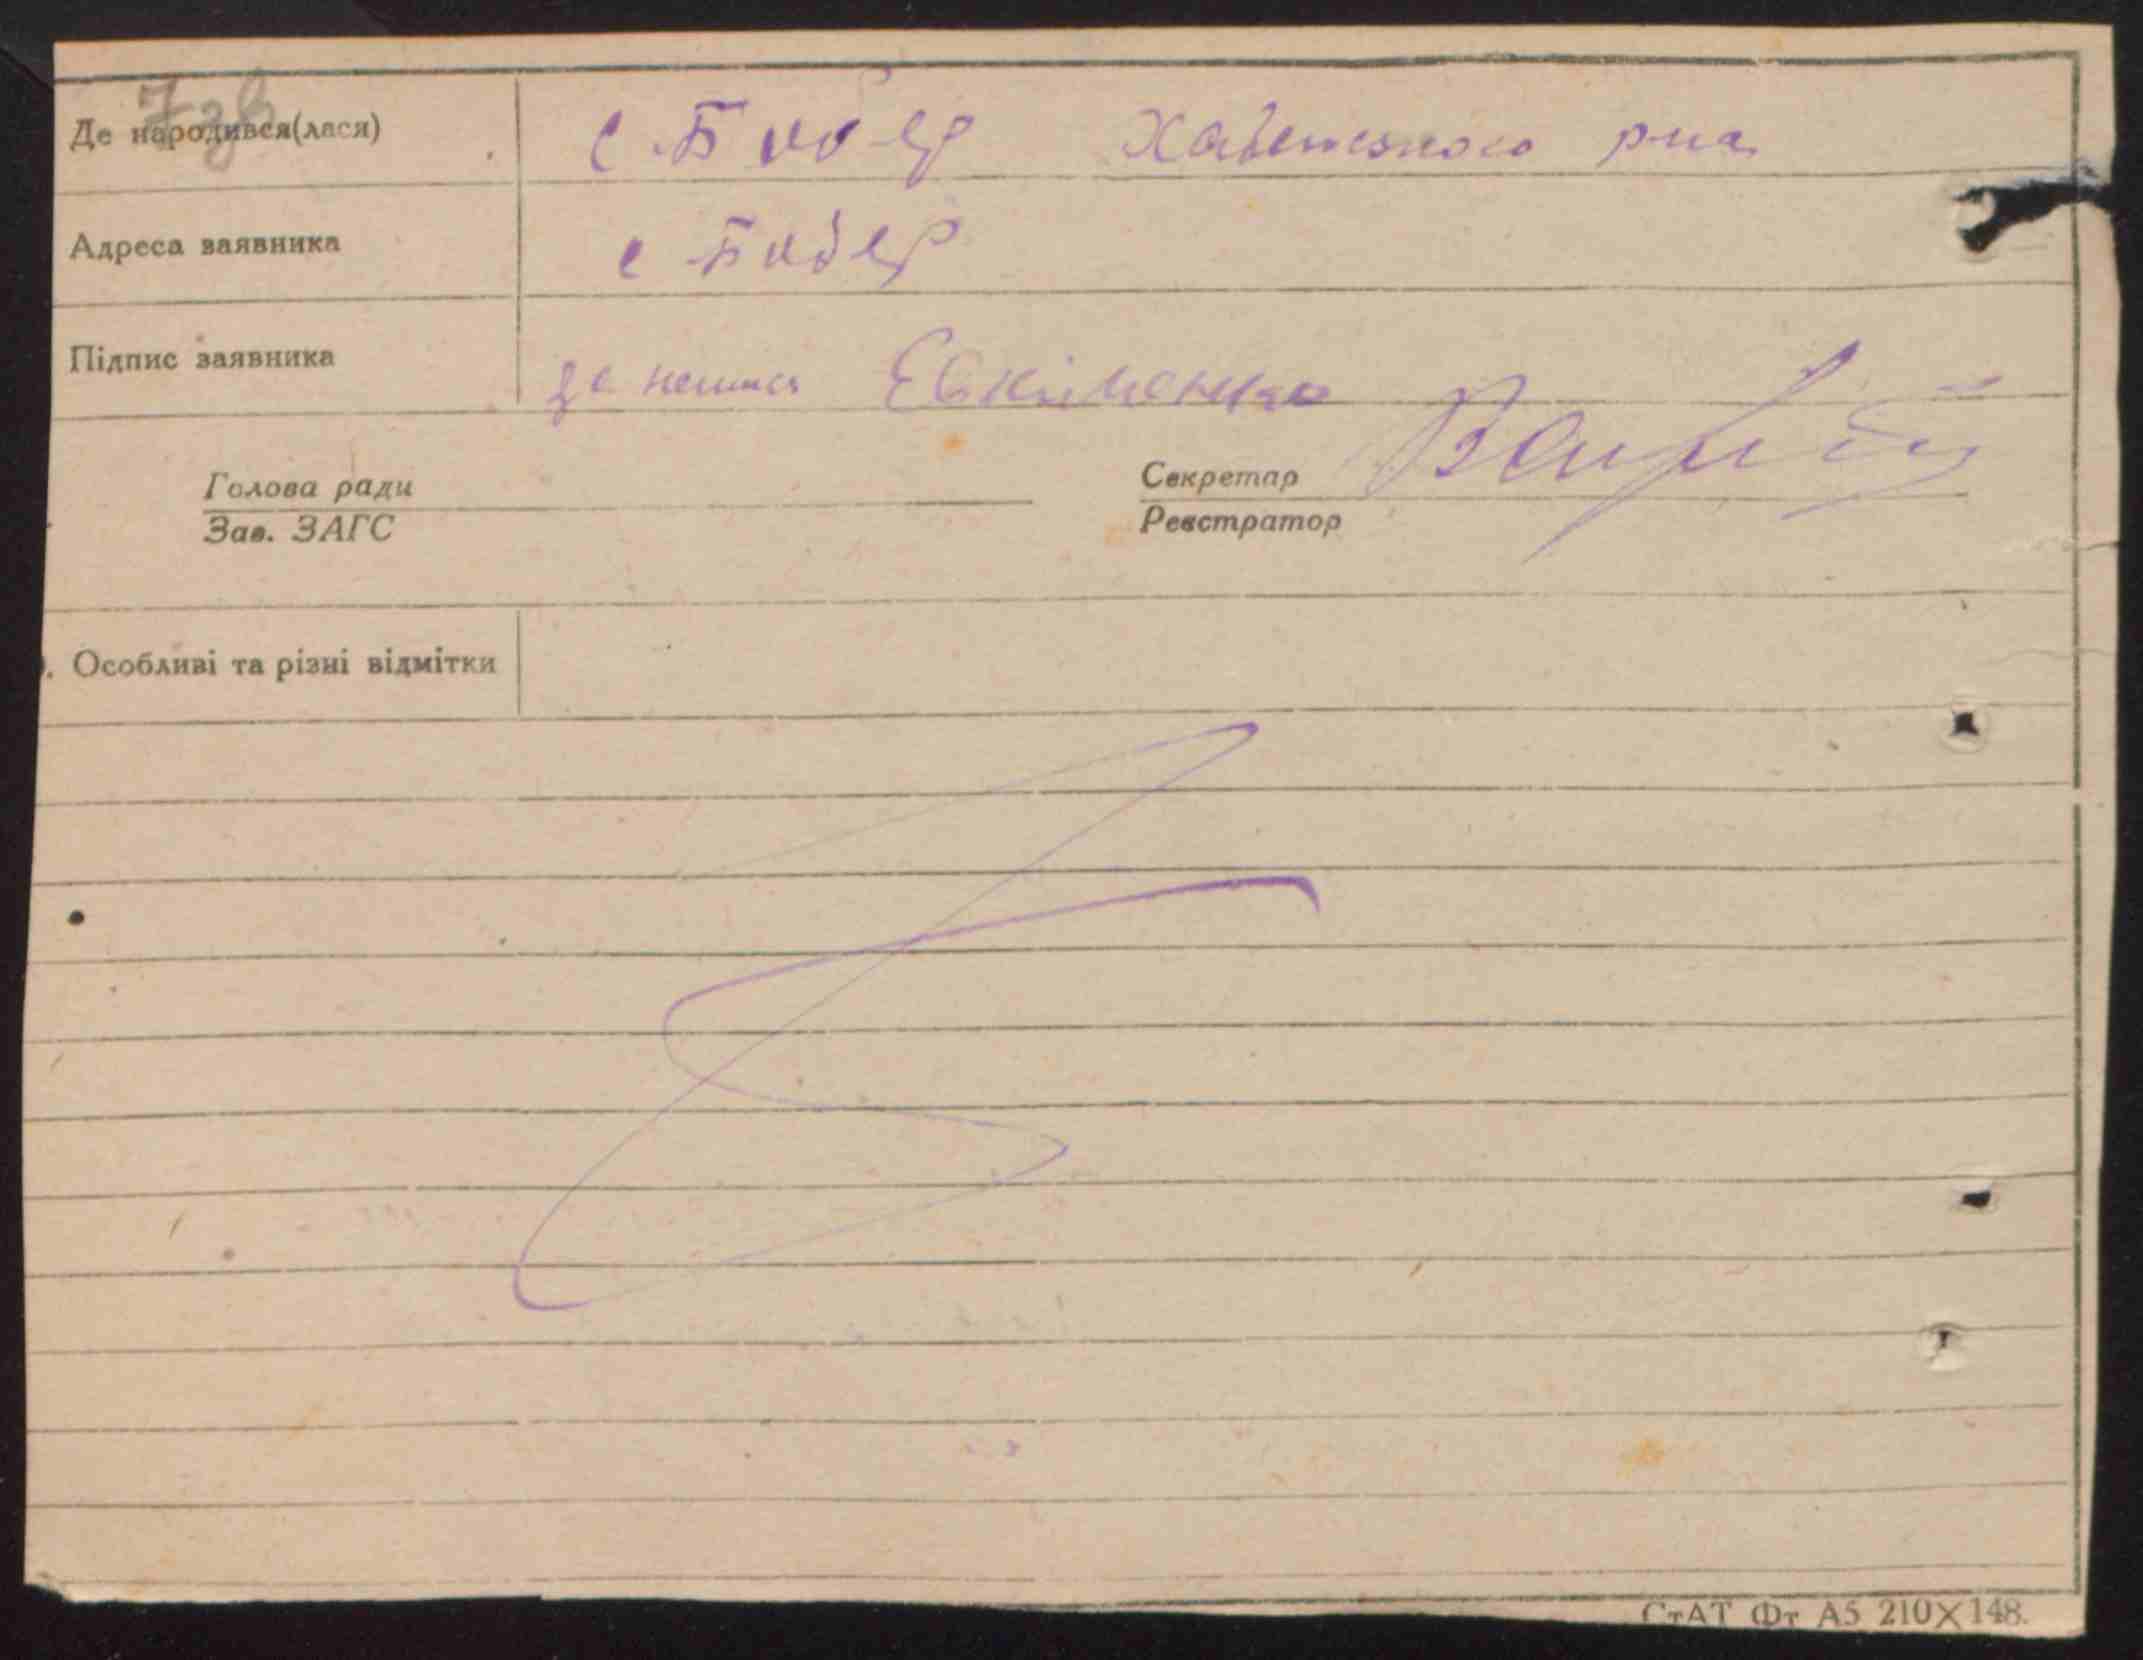 7зв
Де народився(лася) с. Бобер Хабенського р-на
Адреса заявника с Бобер
Підпис заявника Євкименко
Голова ради
Зав. ЗАГС
Секретар
Реєстратор
. Особливі та різні відмітки
СтАТ Фт А5 210X148.